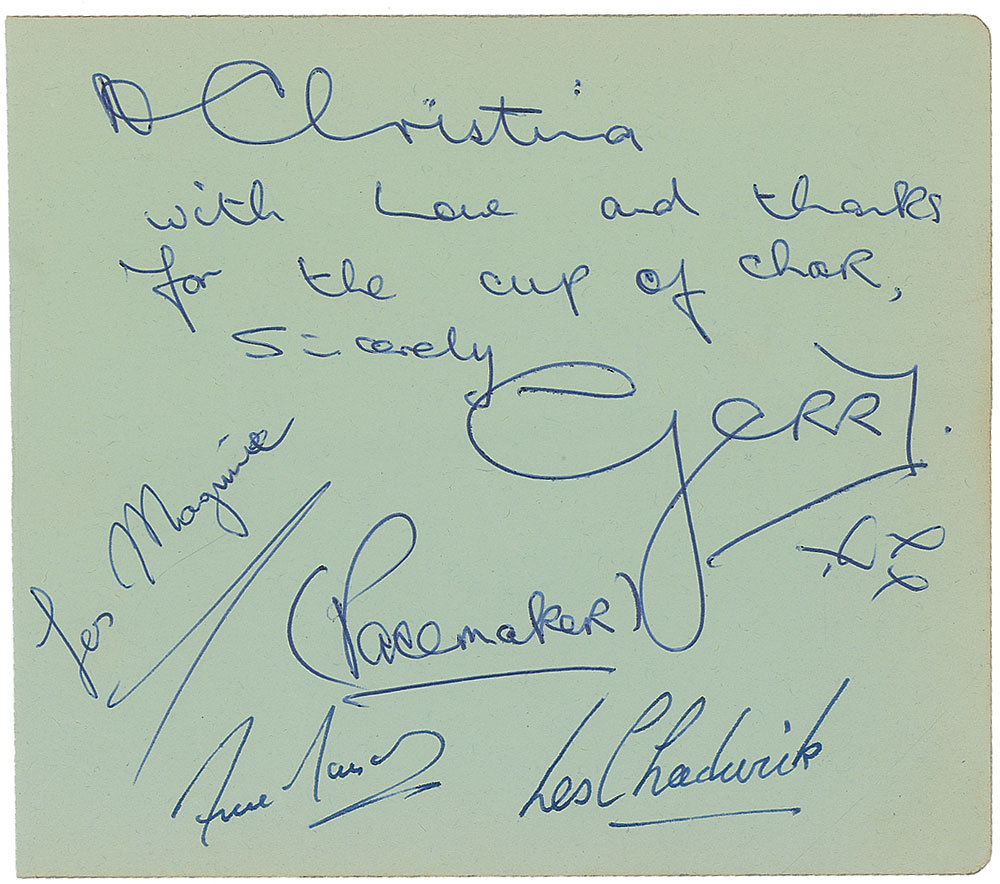 To Christina
with Love and thanks
for the cup of char,
Sincerely
GERRY.
xxx
Les Maguire
(Pacemaker)
Les Chadwick